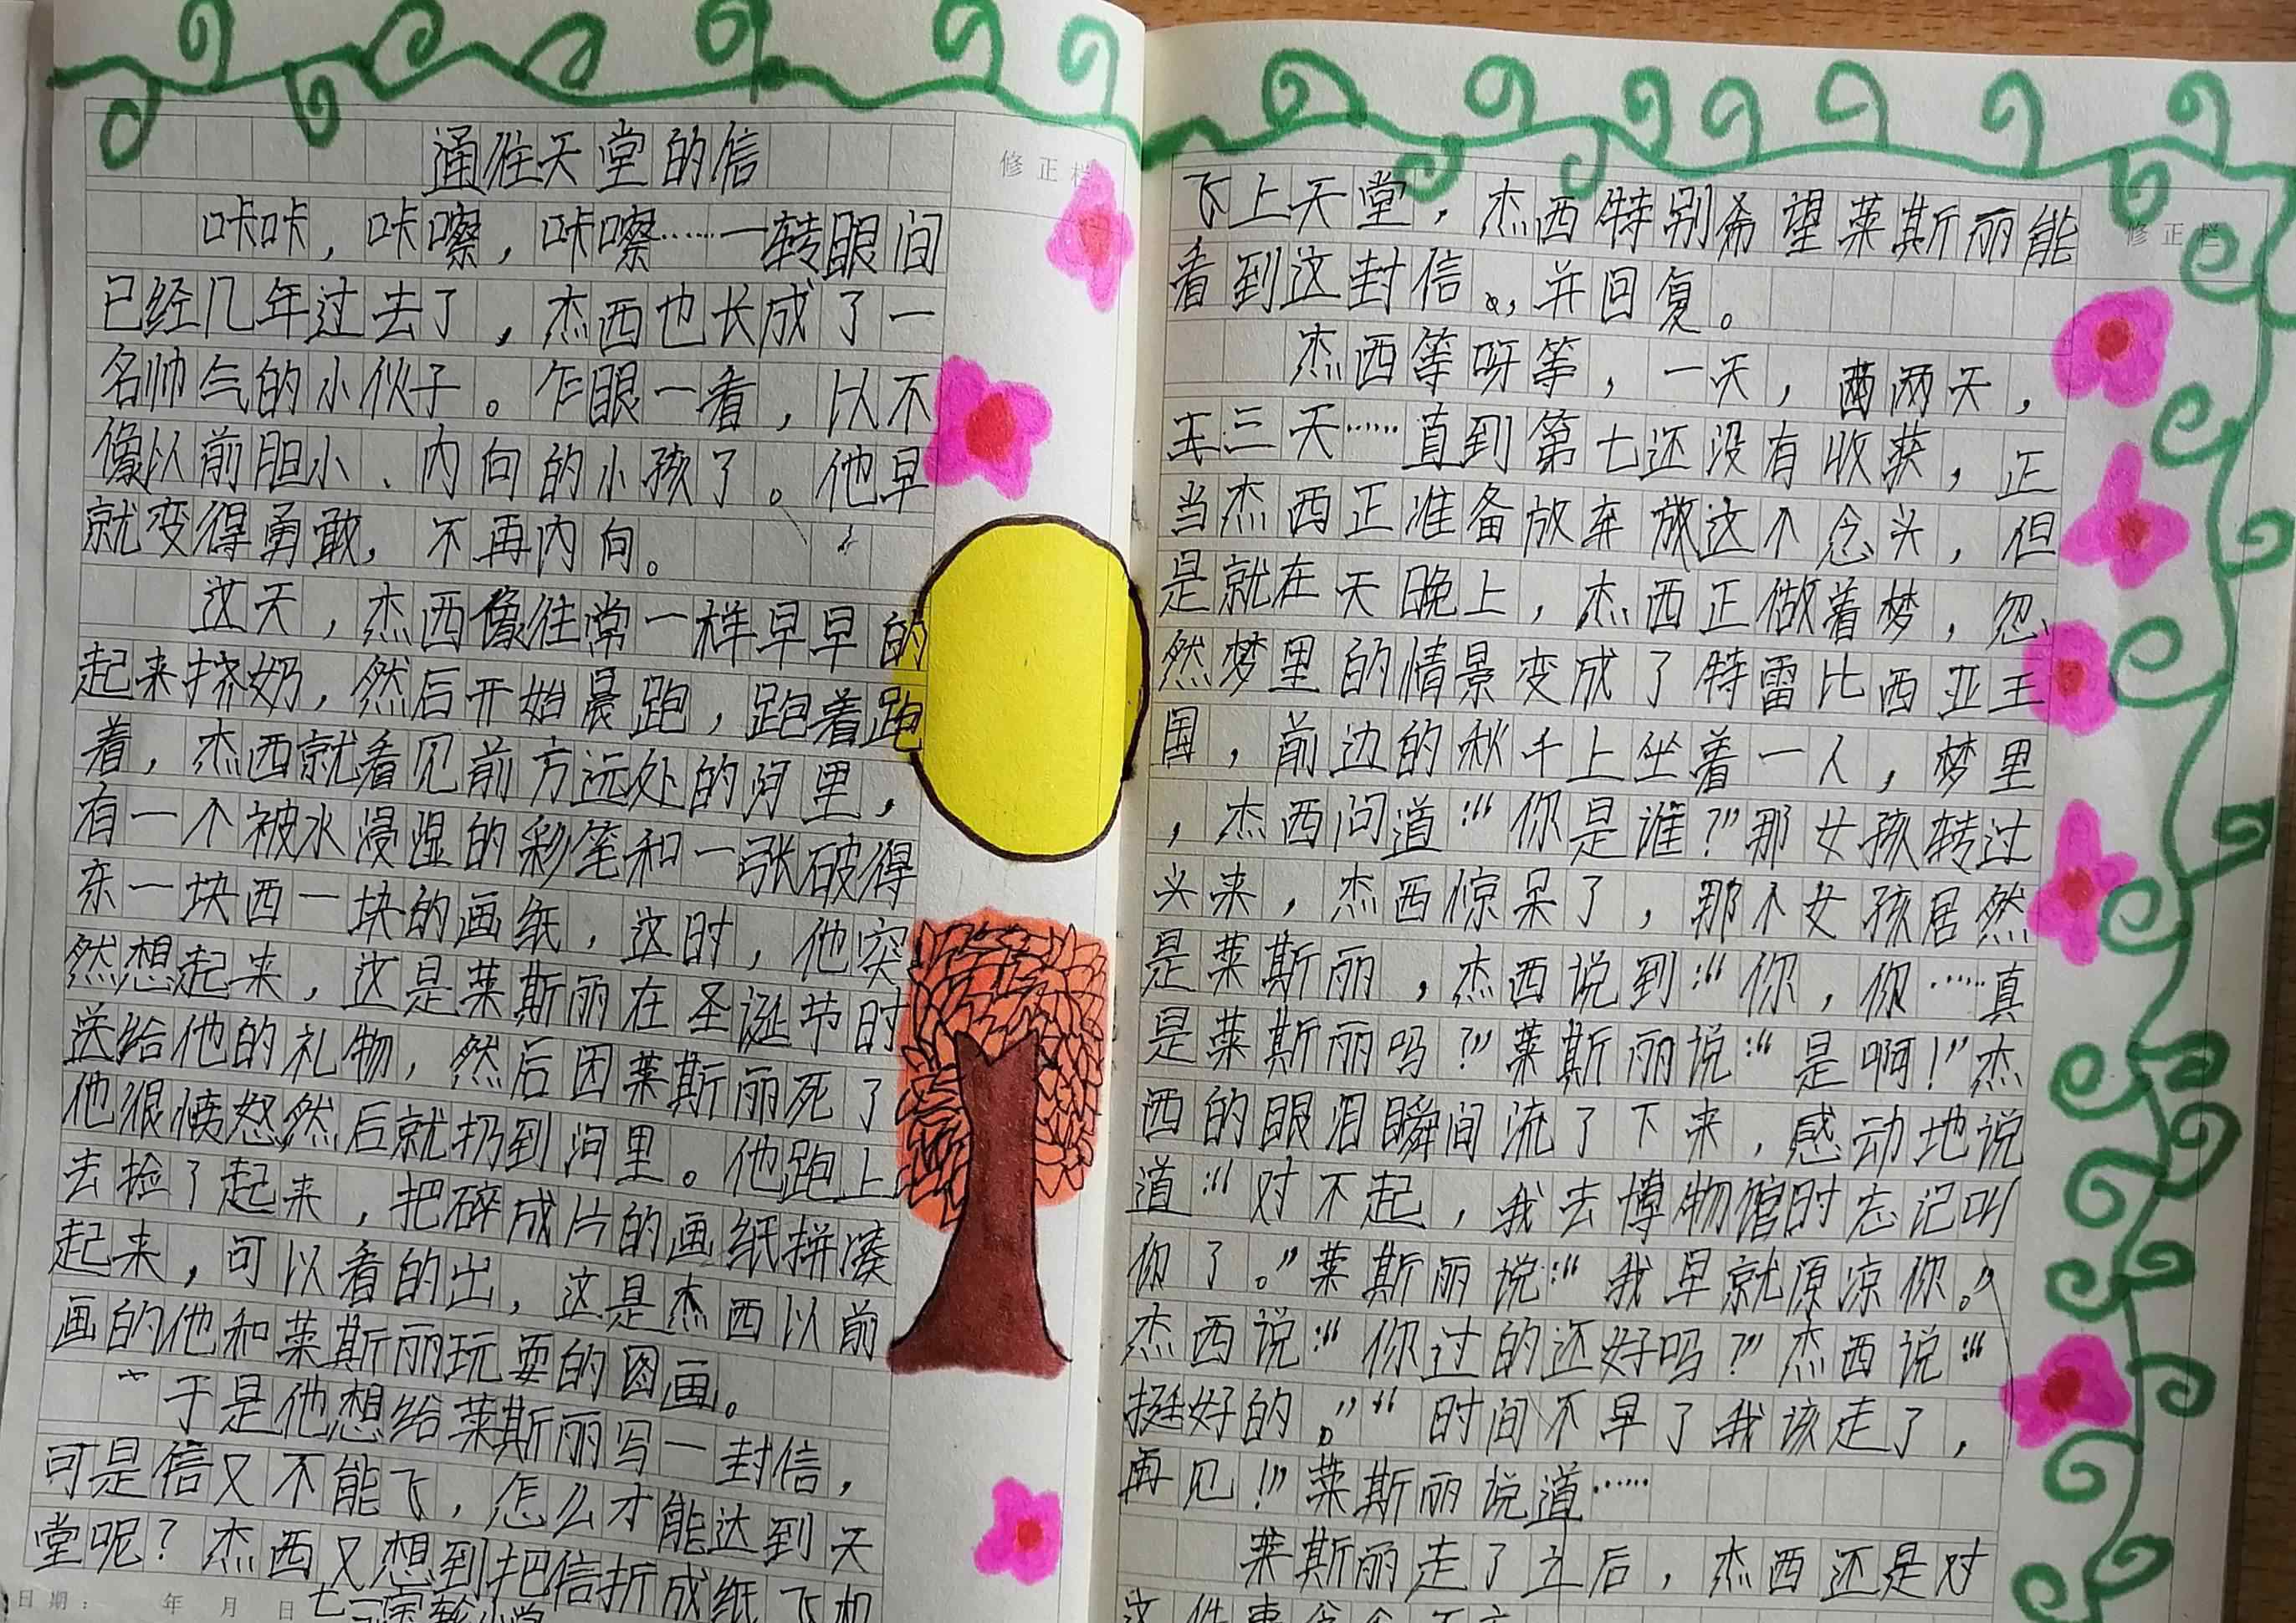 通往天堂的信
修正栏
咔咔，咔嚓，咔嚓……一转眼间
已经几年过去了，杰西也长成了一
名帅气的小伙子。乍眼一看，以不
像以前胆小、内向的小孩了。他早
就变得勇敢，不再内向。
这天，杰西像往常一样早早的
起来挤奶，然后开始晨跑，跑着跑
着，杰西就看见前方远处的河里，
有一个被水浸湿的彩笔和一张破得
东一块西一块的画纸，这时，他突
然想起来，这是莱斯丽在圣诞节时
送给他的礼物，然后因莱斯丽死了
他很愤怒然后就扔到河里。他跑上
去捡了起来，把碎成片的画纸拼凑
起来，可以看的出，这是杰西以前
画的他和莱斯丽玩耍的图画。
于是他想给莱斯丽写一封信，
可是信又不能飞，怎么才能达到天
堂呢？杰西又想到把信折成纸飞机
日期： 年 月 日
飞上天堂，杰西特别希望莱斯丽能
修正栏
看到这封信，并回复。
杰西等呀等，一天，两天，
三天……直到第七还没有收获，正
当杰西正准备放弃放这个念头，但
是就在天晚上，杰西正做着梦，忽
然梦里的情景变成了特雷比西亚王
国，前边的秋千上坐着一人，梦里
，杰西问道：“你是谁？”那女孩转过
头来，杰西惊呆了，那个女孩居然
是莱斯丽，杰西说到：“你，你……真
是莱斯丽吗？”莱斯丽说：“是啊！”杰
西的眼泪瞬间流了下来，感动地说
道：“对不起，我去博物馆时忘记叫
你了。”莱斯丽说：“我早就原凉你。”
杰西说：“你过的还好吗？”杰西说：“
挺好的。”“时间不早了我该走了，
再见！”莱斯丽说道……
莱斯丽走了之后，杰西还是对